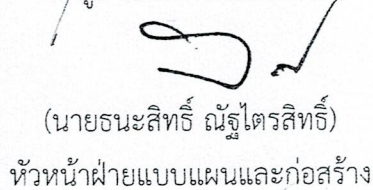 (นายธนะสิทธิ์ ณัฐไตรสิทธิ์)
หัวหน้าฝ่ายแบบแผนและก่อสร้าง